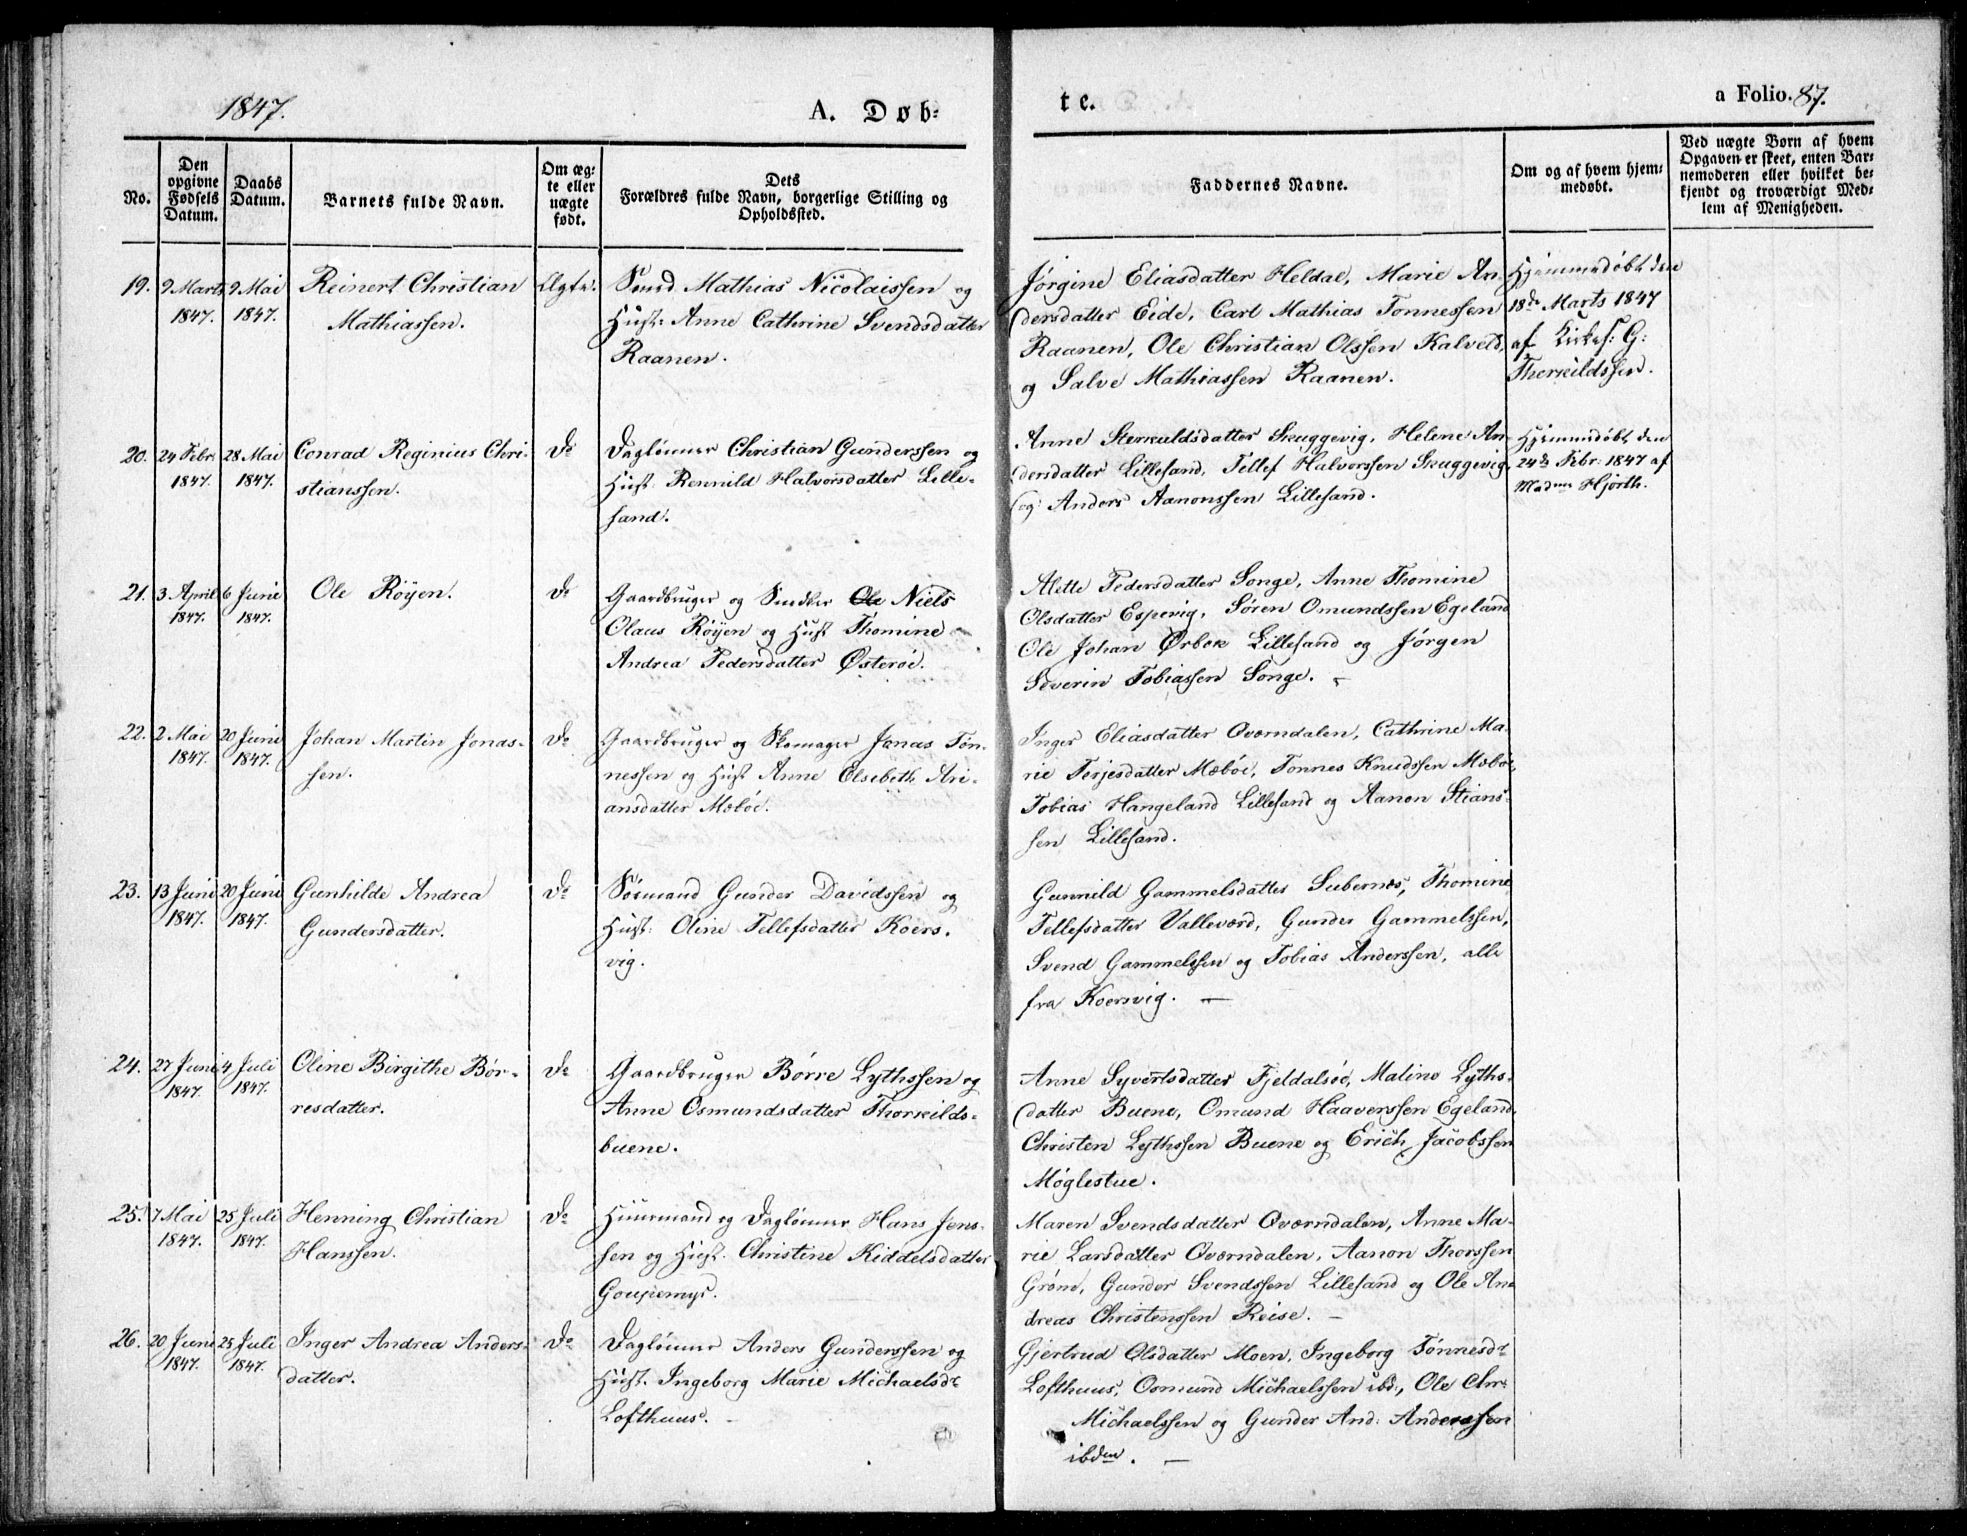 1847.
A. Døb=
te.
a Folio. 87.
No.
Den
opgivne
Fødsels
Datum.
Daabs
Datum.
Barnets fulde Navn.
Om æg=
te eller
uægte
født.
Dets
Forældres fulde Navn, borgerlige Stilling og
Opholdssted.
Faddernes Navne.
Om og af hvem hjem=
medøbt.
Ved uægte Børn af hvem
Opgaven er skeet, enten Bar=
nemoderen eller hvilket be=
kjendt og troværdigt Med=
lem af Menigheden.
19.
9 Marts
1847.
9 Mai
1847.
Reinert Christian
Mathiassen.
Ægte.
Smed Mathias Nicolaissen og
Hust: Anne Cathrine Svendsdatter
Raanen.
Jørgine Eliasdatter Heldal, Marie An=
dersdatter Eide, Carl Mathias Tønnessen
Raanen, Ole Christian Olssen Kalveld,
og Salve Mathiassen Raanen.
Hjemmedøbt den
18de Marts 1847
af Kirkes: G:
Therkildssen.
20.
24 Febr.
1847.
28 Mai
1847.
Conrad Reginius Chri=
stianssen.
Do
Daglønner Christian Gunderssen og
Hust. Rennild Halvorsdatter Lille=
sand.
Anne Sterkuldsdatter Skuggevig, Helene An=
dersdatter Lillesand, Tellef Halvorssen Skuggevig
og Anders Aanonssen Lillesand.
Hjemmedøbt den
24de Febr: 1847 af
Madme Hjørth.
21.
3 April
1847.
6 Juni
1847.
Ole Røyen.
Do
Gaardbruger og Snedker Ole Niels
Olaus Røyen og Hust Thomine
Andrea Pedersdatter Østerøe.
Alette Pedersdatter Songe, Anne Thomine
Olsdatter Espevig, Søren Omundssen Egeland
Ole Johan Ørbek Lillesand og Jørgen
Severin Tobiassen Songe.
22.
2 Mai
1847.
20 Juni
1847.
Johan Martin Jonas=
sen.
Do
Gaardbruger og Skomager Jonas Tøn=
nessen og Hust Anne Elsebeth Ari=
ansdatter Mæbøe.
Inger Eliasdatter Oværndalen, Cathrine Ma=
rie Terjesdatter Mæbøe, Tønnes Knudssen Mæbøe,
Tobias Hangeland Lillesand og Aanon Stians=
sen Lillesand.
23.
13 Juni
1847.
20 Juni
1847.
Gunhilde Andrea
Gundersdatter.
Do
Søemand Gunder Davidssen og
Hust: Oline Tellefsdatter Koers.
vig.
Gunnild Gammelsdatter Lubernæs, Thomine
Tellefsdatter Valleværd, Gunder Gammelssen,
Svend Gammelssen og Tobias Anderssen, alle
fra Koersvig. —
24.
27 Juni
1847.
4 Juli
1847.
Oline Birgithe Bør=
resdatter.
Do
Gaardbruger Børre Lythssen og
Anne Osmundsdatter Thorkilds=
buene.
Anne Syvertsdatter Fjeldalsøe, Maline Lyths=
datter Buene, Omund Haaverssen Egeland,
Christen Lythssen Buene og Erich Jacobssen
Møglestue.
25.
7 Mai
1847.
25 Juli
1847.
Henning Christian
Hanssen.
Do
Huusmand og Dagløнner Hans Jens=
sen og Hust. Christine Kiddelsdatter
Maren Svendsdatter Oværndalen, Anne Ma=
rie Larsdatter Oværndalen, Aanon Thorssen
Grøm, Gunder Svendssen Lillesand og Ole An=
dreas Christenssen Reise. —
26.
20 Juni
1847.
25 Juli
1847.
Inger Andrea Anders=
datter.
Do
Dagløнner Anders Gunderssen og
Hust. Ingeborg Marie Michaelsdr
Lofthuus. —
Gjertrud Olsdatter Moen, Ingeborg Tønnesdr
Lofthuus, Osmund Michaelssen ibd:, Ole Chr:
Michaelssen og Gunder And: Anderssen
ibdem. —